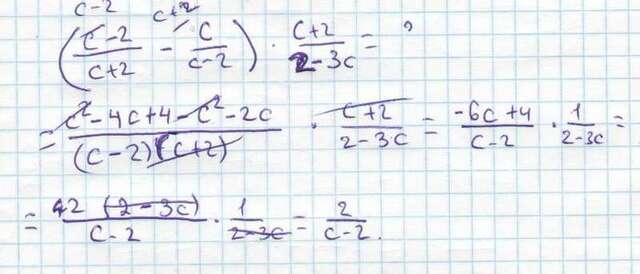 c-2 c+2
(c-2/c+2 - c/c-2) · c+2/2-3c = ?
= c²-4c+4-c²-2c/(c-2)(c+2) · c+2/2-3c = -6c+4/c-2 · 1/2-3c =
= 2(2-3c)/c-2 · 1/2-3c = 2/c-2.